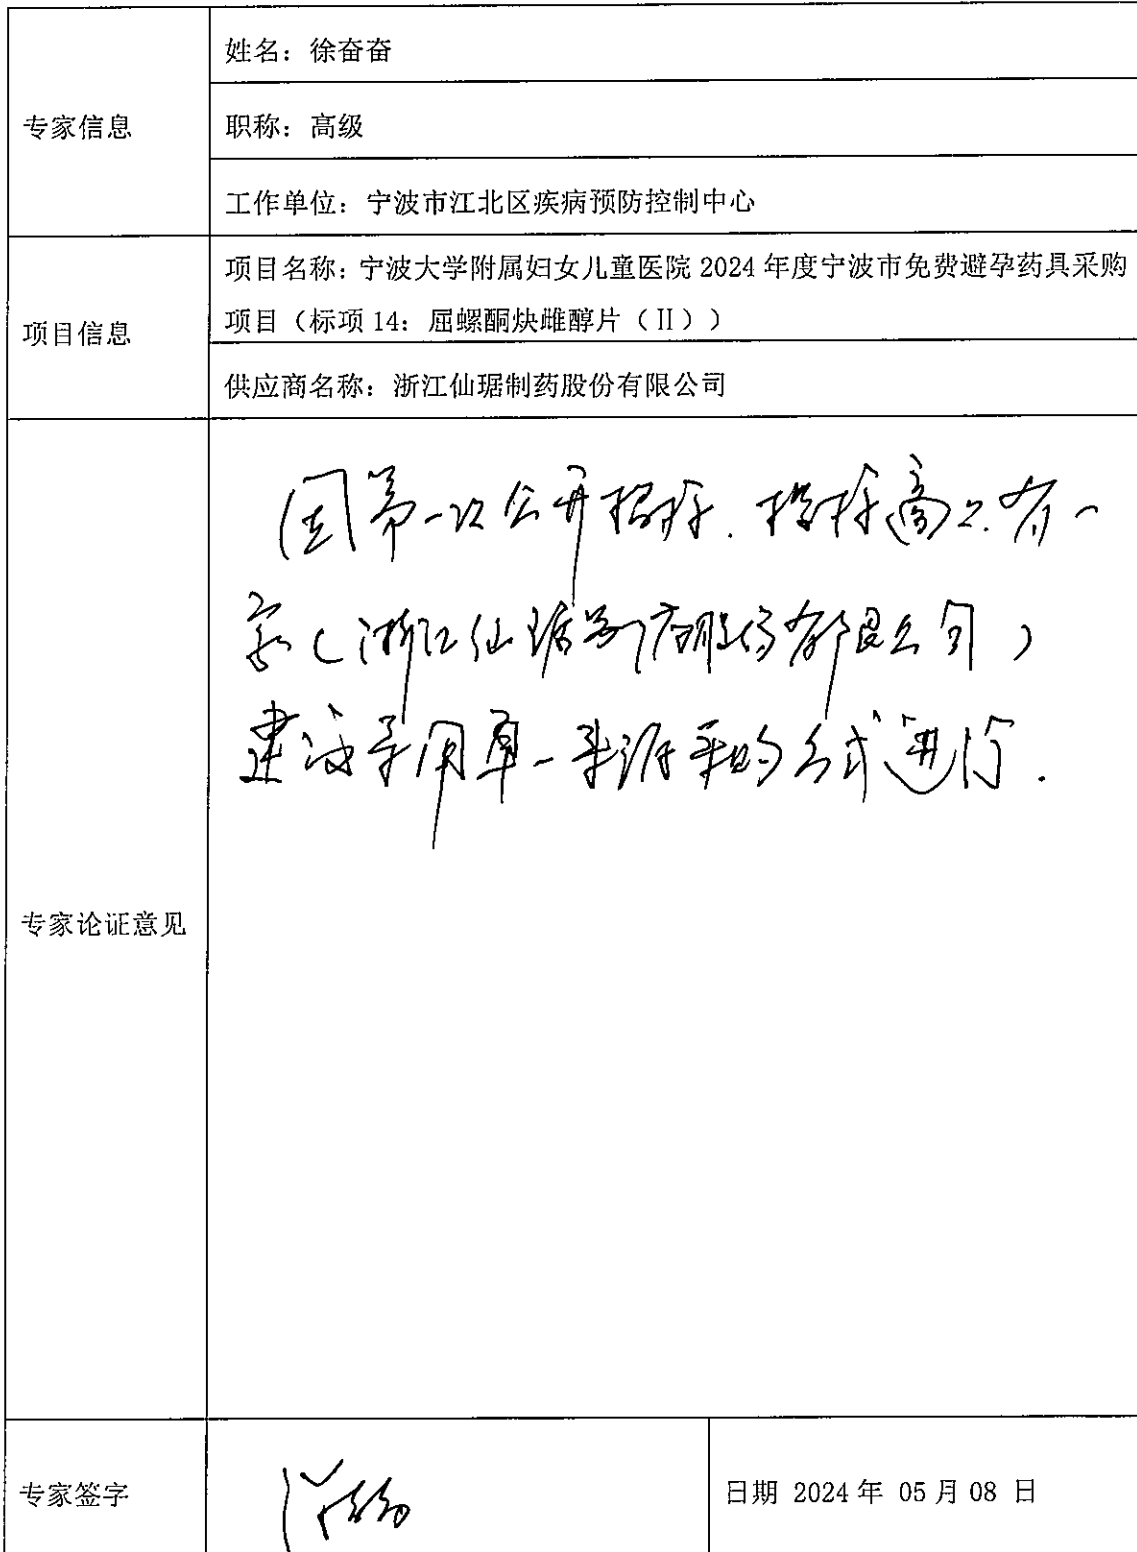 姓名：徐奋奋
专家信息
职称：高级
工作单位：宁波市江北区疾病预防控制中心
项目信息
项目名称：宁波大学附属妇女儿童医院 2024 年度宁波市免费避孕药具采购
项目（标项 14：屈螺酮炔雌醇片（Ⅱ））
供应商名称：浙江仙琚制药股份有限公司
专家论证意见
因第一次公开招标.投标商只有一
家（浙江仙琚制药股份有限公司）
建议采用单一来源采购方式进行.
专家签字
日期 2024 年 05 月 08 日